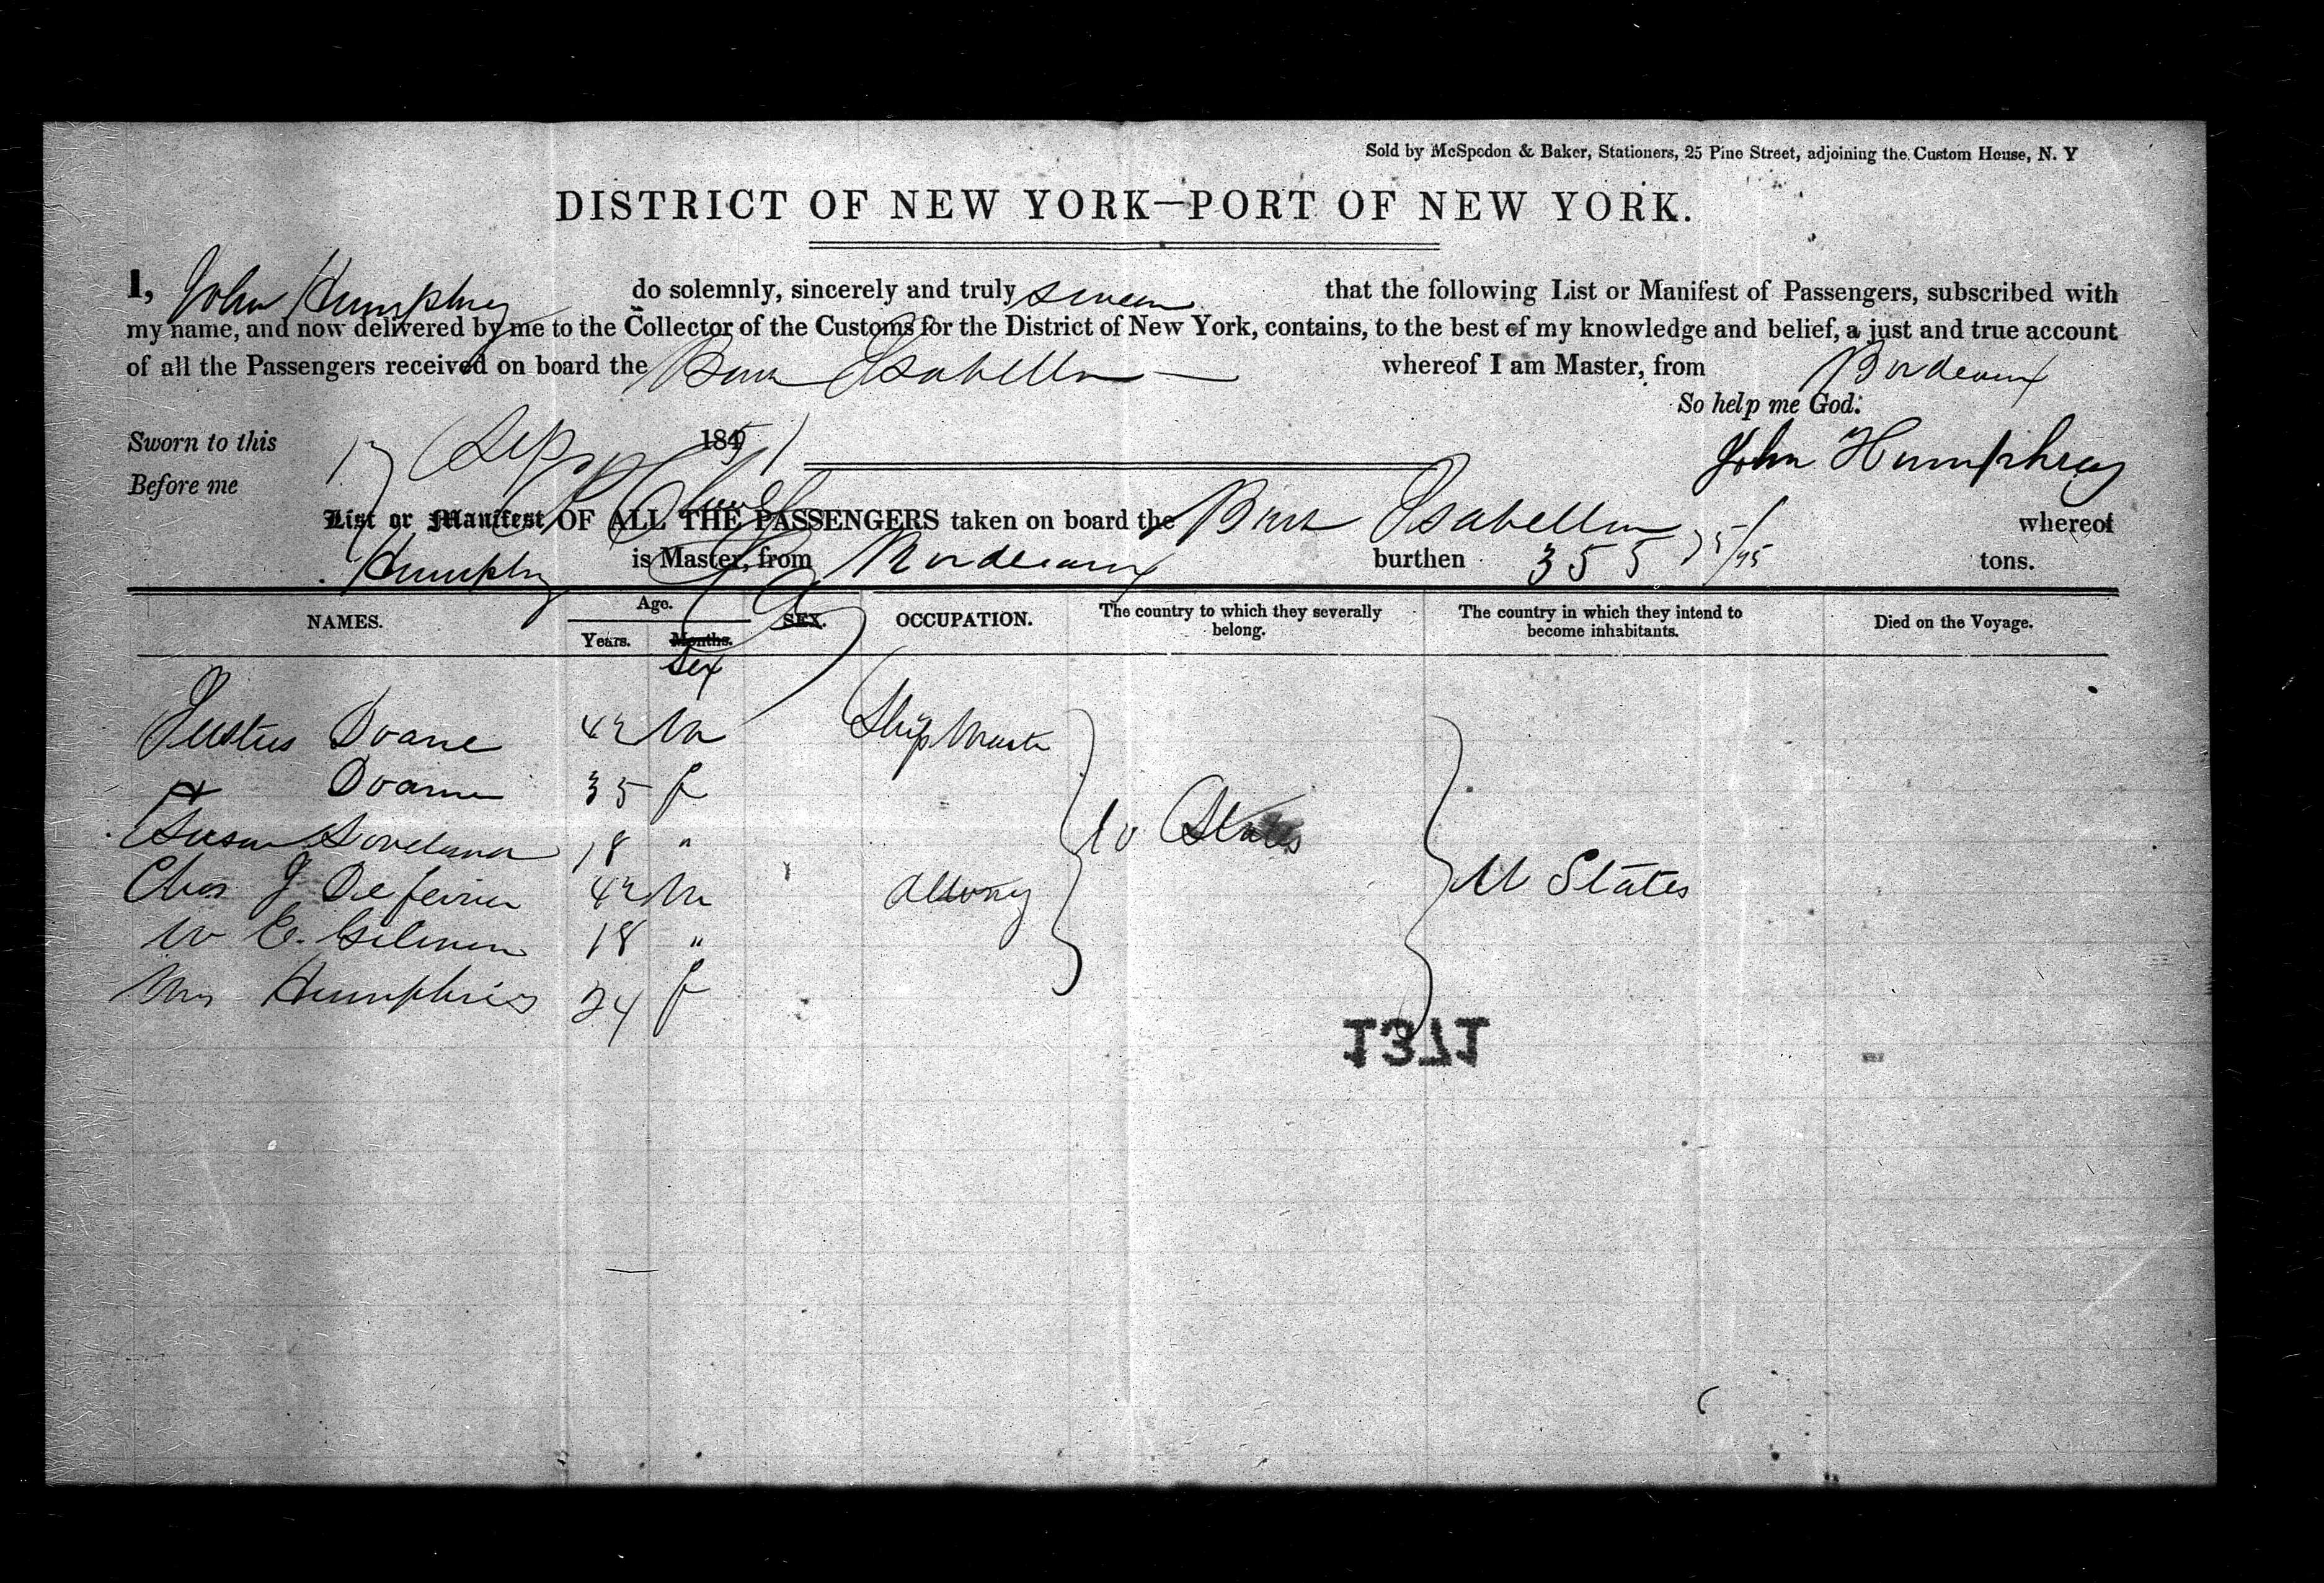 Sold by McSpedon & Baker, Stationers, 25 Pine Street, adjoining the Custom House, N. Y
DISTRICT OF NEW YORK—PORT OF NEW YORK.
I, John Humphrey do solemnly, sincerely and truly swear that the following List or Manifest of Passengers, subscribed with
my name, and now delivered by me to the Collector of the Customs for the District of New York, contains, to the best of my knowledge and belief, a just and true account
of all the Passengers received on board the Bark Isabella whereof I am Master, from Bordeaux
So help me God.
Sworn to this 17 Sep 1851
John Humphrey
Before me
List or Manifest OF ALL THE PASSENGERS taken on board the Bark Isabella whereof
Humphrey is Master, from Bordeaux burthen 355 75/95 tons.
NAMES. Age. Years. Months. Sex SEX. OCCUPATION. The country to which they severally belong. The country in which they intend to become inhabitants. Died on the Voyage.
Justus Doane 42 M Ship Master
Doane 35 f
Susan 18 " U States
Chas J 42 M Attorney U States
W E. Gilman 18 "
Mrs Humphries 24 f
1371